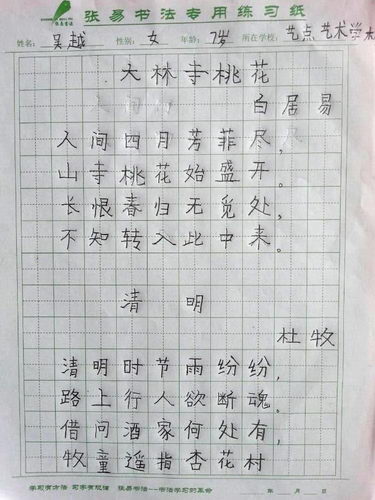 张易书法专用练习纸
姓名：吴越 性别：女 年龄：7岁 所在学校：艺点艺术学校
大林寺桃花
白居易
人间四月芳菲尽，
山寺桃花始盛开。
长恨春归无觅处，
不知转入此中来。
清明
杜牧
清明时节雨纷纷，
路上行人欲断魂。
借问酒家何处有，
牧童遥指杏花村
学习有方法 写字有规律 张易书法——书法学习的革命 年 月 日